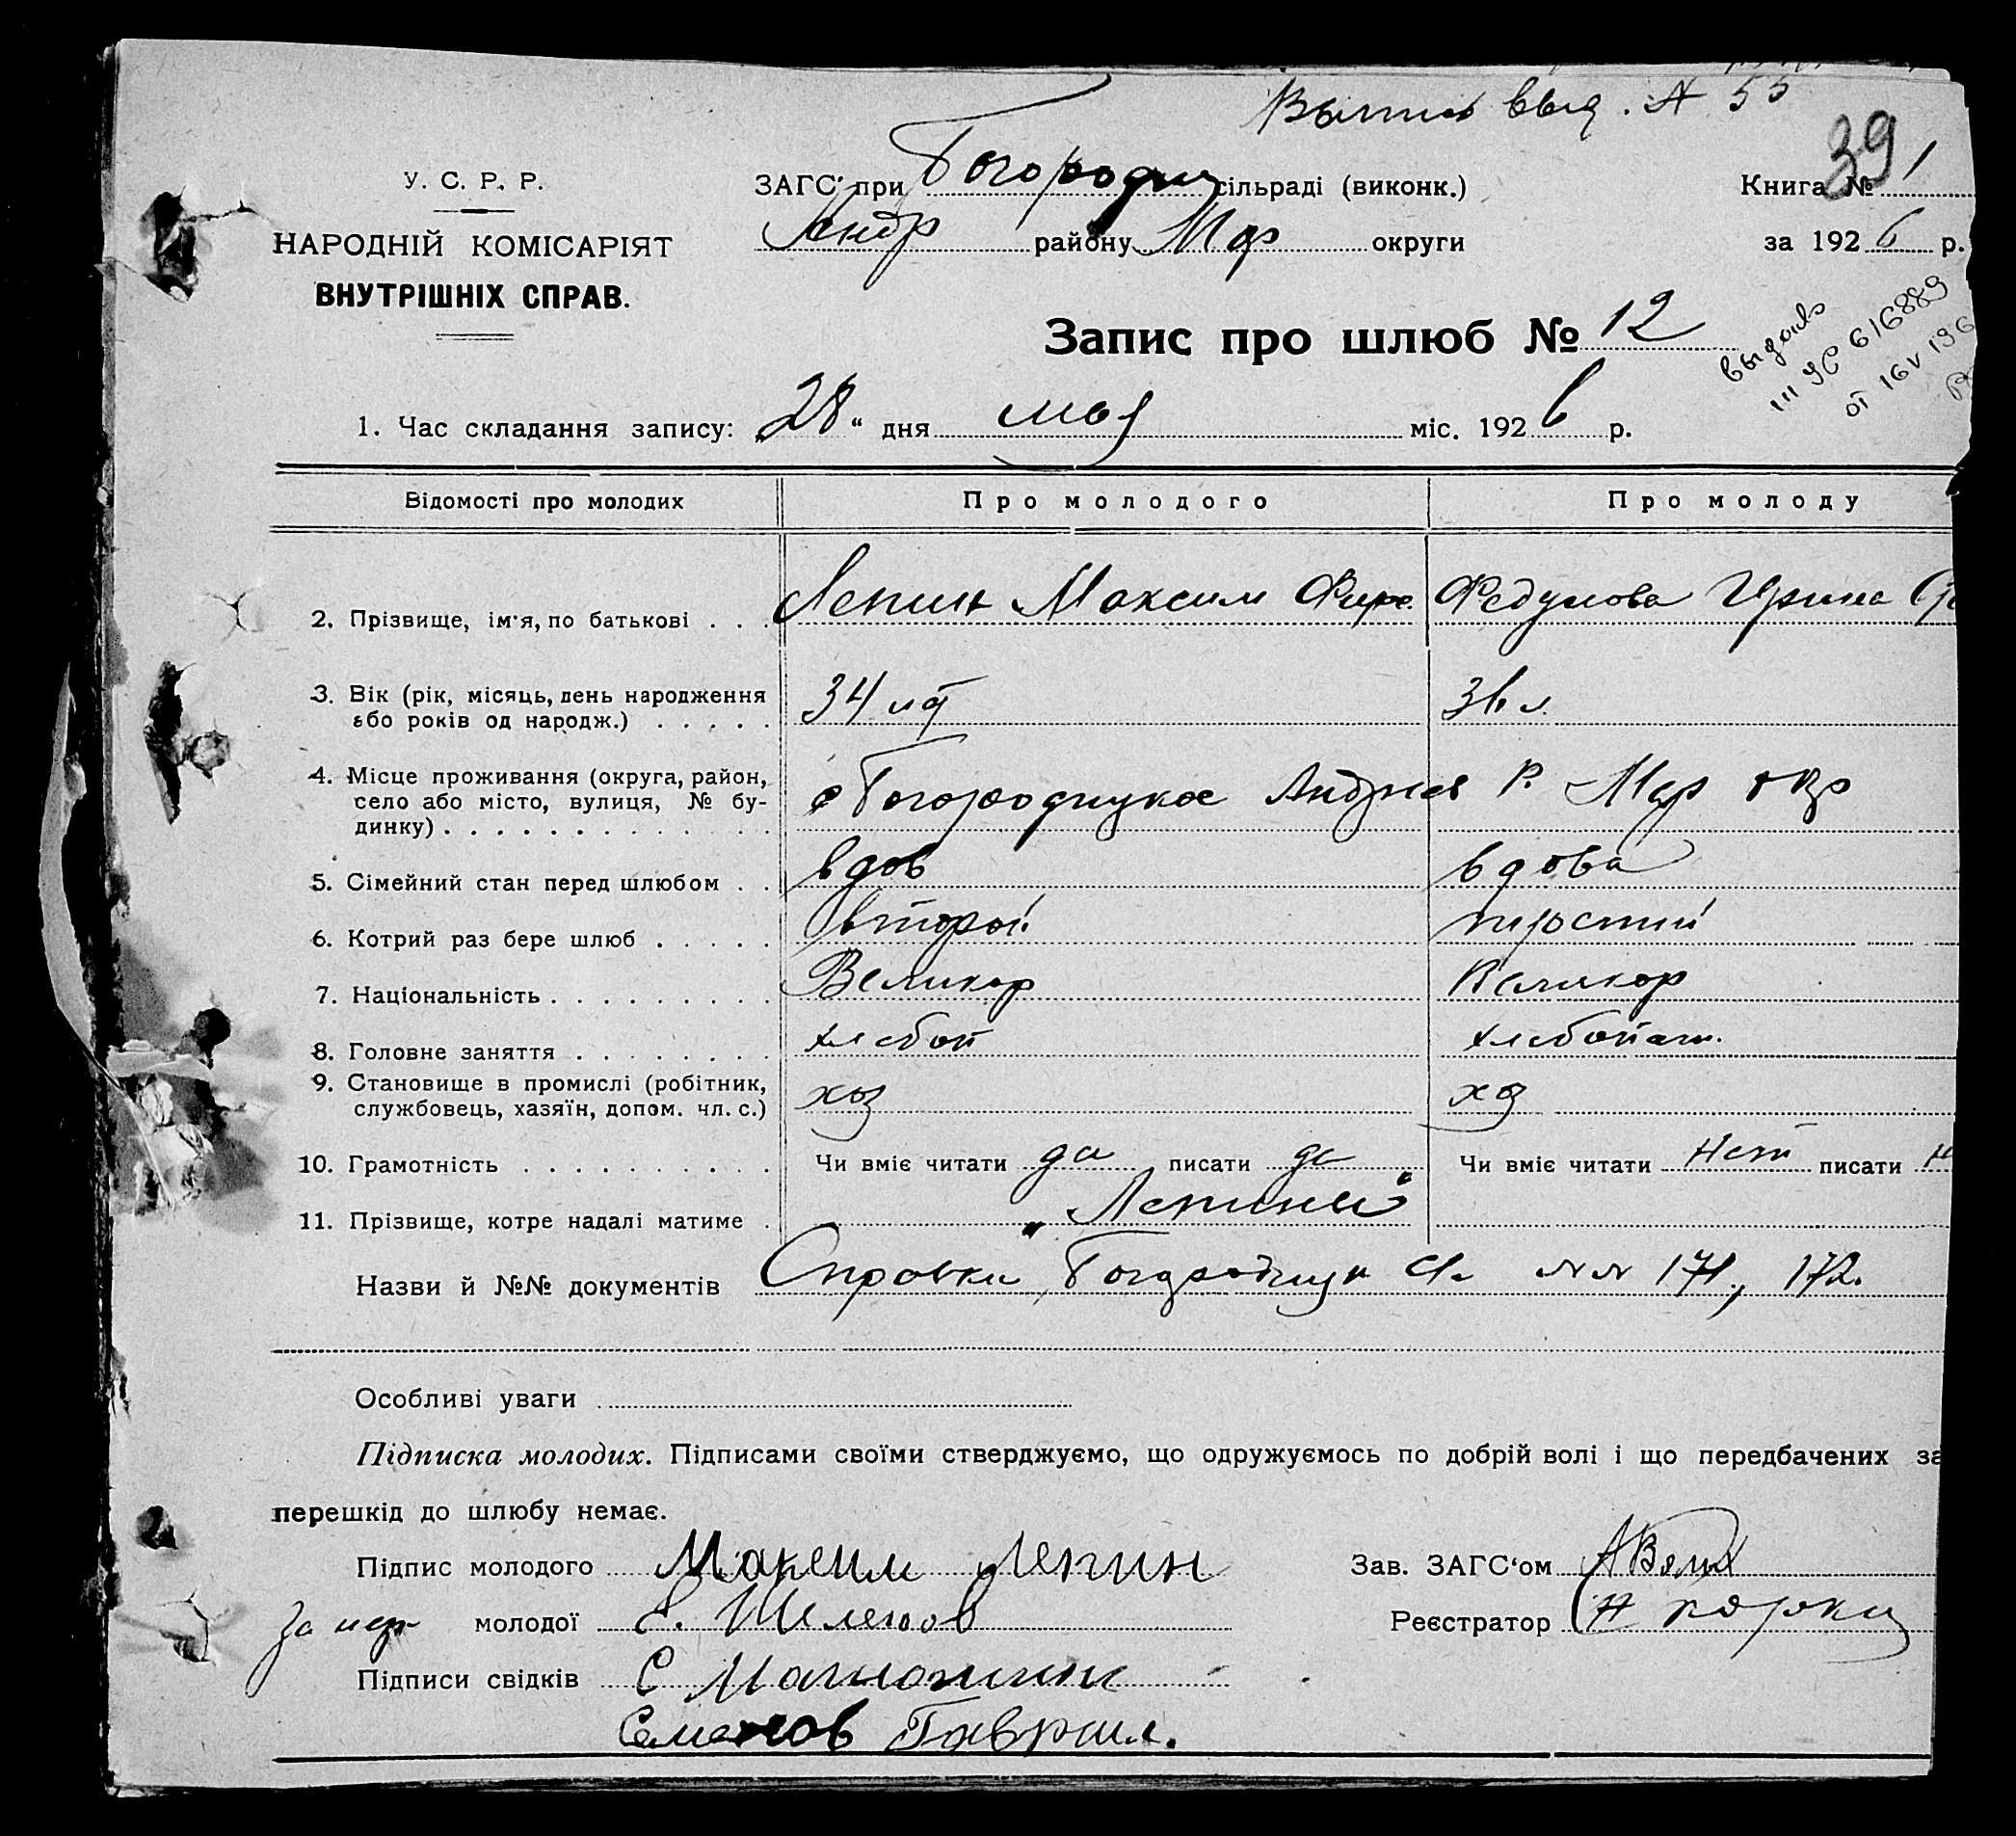 выд. № 55
39
У. С. Р. Р.
ЗАГС' при Богородиц сільраді (виконк.) Книга № 1
НАРОДНІЙ КОМІСАРІЯТ Андр району Мар округи за 1926 р.
ВНУТРІШНІХ СПРАВ.
Запис про шлюб № 12
выдано
III 616889
от 16 V 196
1. Час складання запису: „28“ дня мая міс. 1926 р.
Відомості про молодих Про молодого Про молоду
2. Прізвище, ім'я, по батькові . . . Лепин Максим Федумова Ирина
3. Вік (рік, місяць, день народження 34 лет 36 л.
або років од народж.) . . . . .
4. Місце проживання (округа, район, с Богородицкое Андреев Р. Мар окр
село або місто, вулиця, № бу-
динку) . . . . . . . . . . . . .
5. Сімейний стан перед шлюбом . . вдов вдова
6. Котрий раз бере шлюб . . . . . второй
7. Національність . . . . . . . . . Великор Великор
8. Головне заняття . . . . . . . . хлебоп хлебопаш.
9. Становище в промислі (робітник, хоз хоз
службовець, хазяїн, допом. чл. с.)
10. Грамотність . . . . . . . . . . Чи вміє читати да писати да Чи вміє читати нет писати н
11. Прізвище, котре надалі матиме . „Лепины“
Назви й №№ документів Справки Богородицк №№ 171, 172.
Особливі уваги
Підписка молодих. Підписами своїми стверджуємо, що одружуємось по добрій волі і що передбачених за
перешкід до шлюбу немає.
Підпис молодого Максим Лепин Зав. ЗАГС'ом
За нег молодої С. Шеленов Реєстратор
Підписи свідків С
Семенов Гаврил.